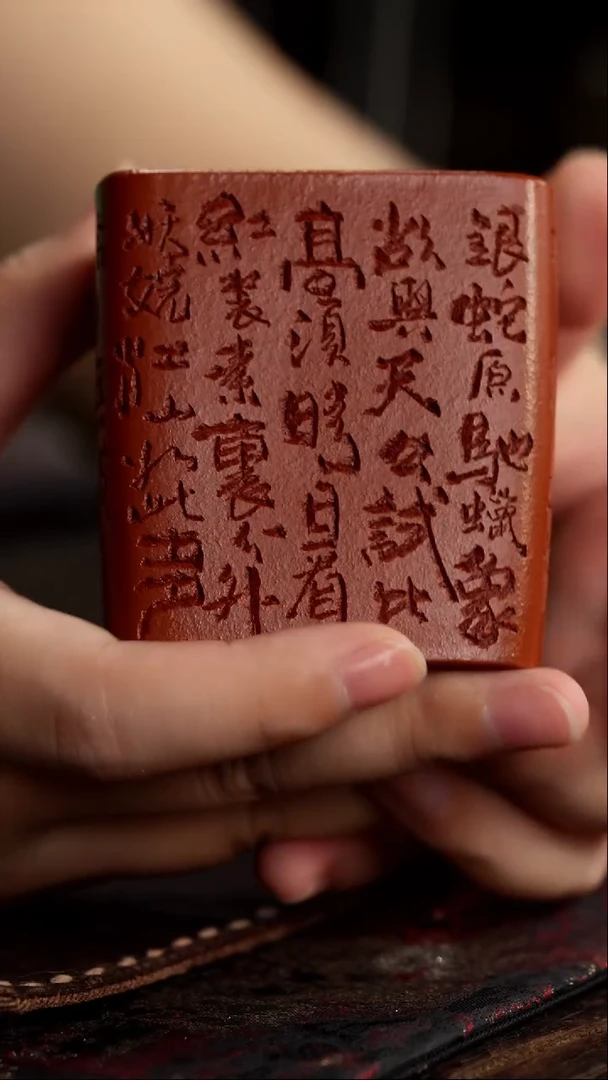 銀蛇原馳蠟象
欲與天公試比
高須晴日看
紅裝素裹分外
妖嬈江山如此